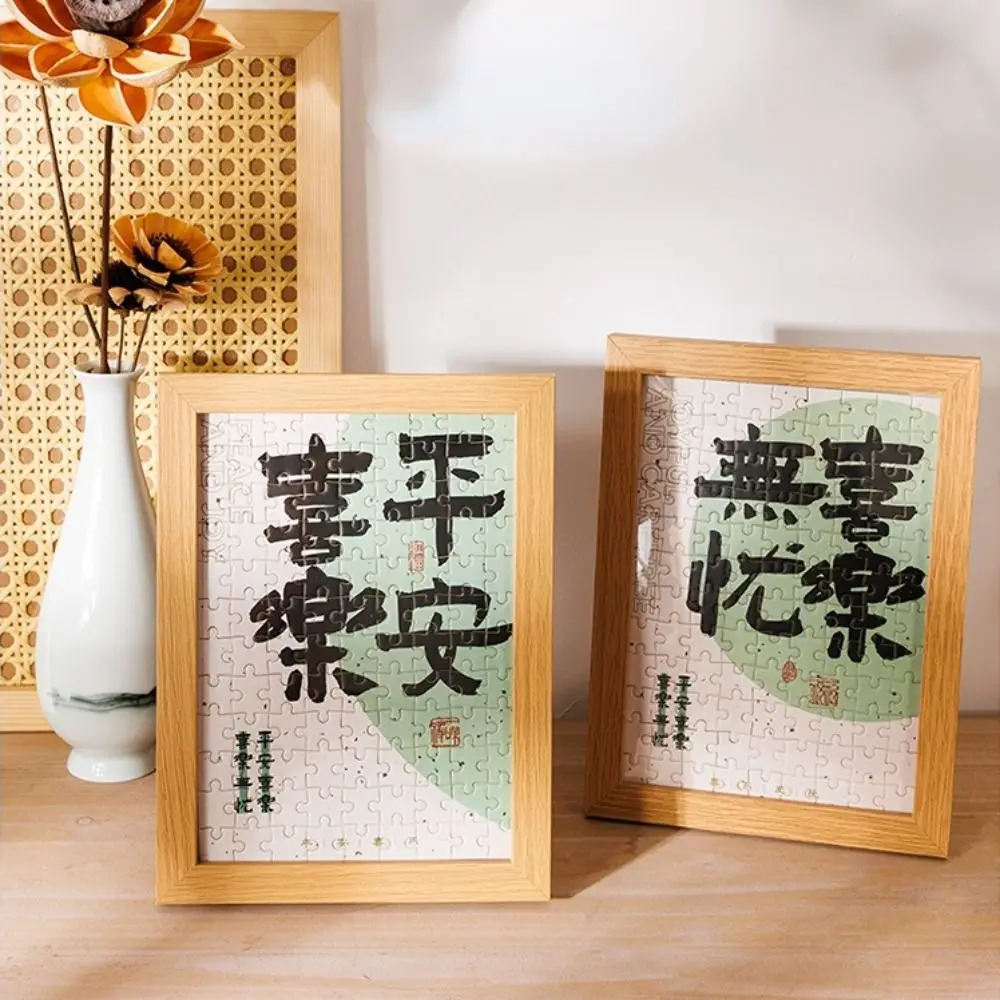 平安
喜樂
PEACE
AND JOY
平安喜樂
喜樂無忧
喜樂
無忧
JOYFUL
AND CAREFREE
平安喜樂
喜樂無忧